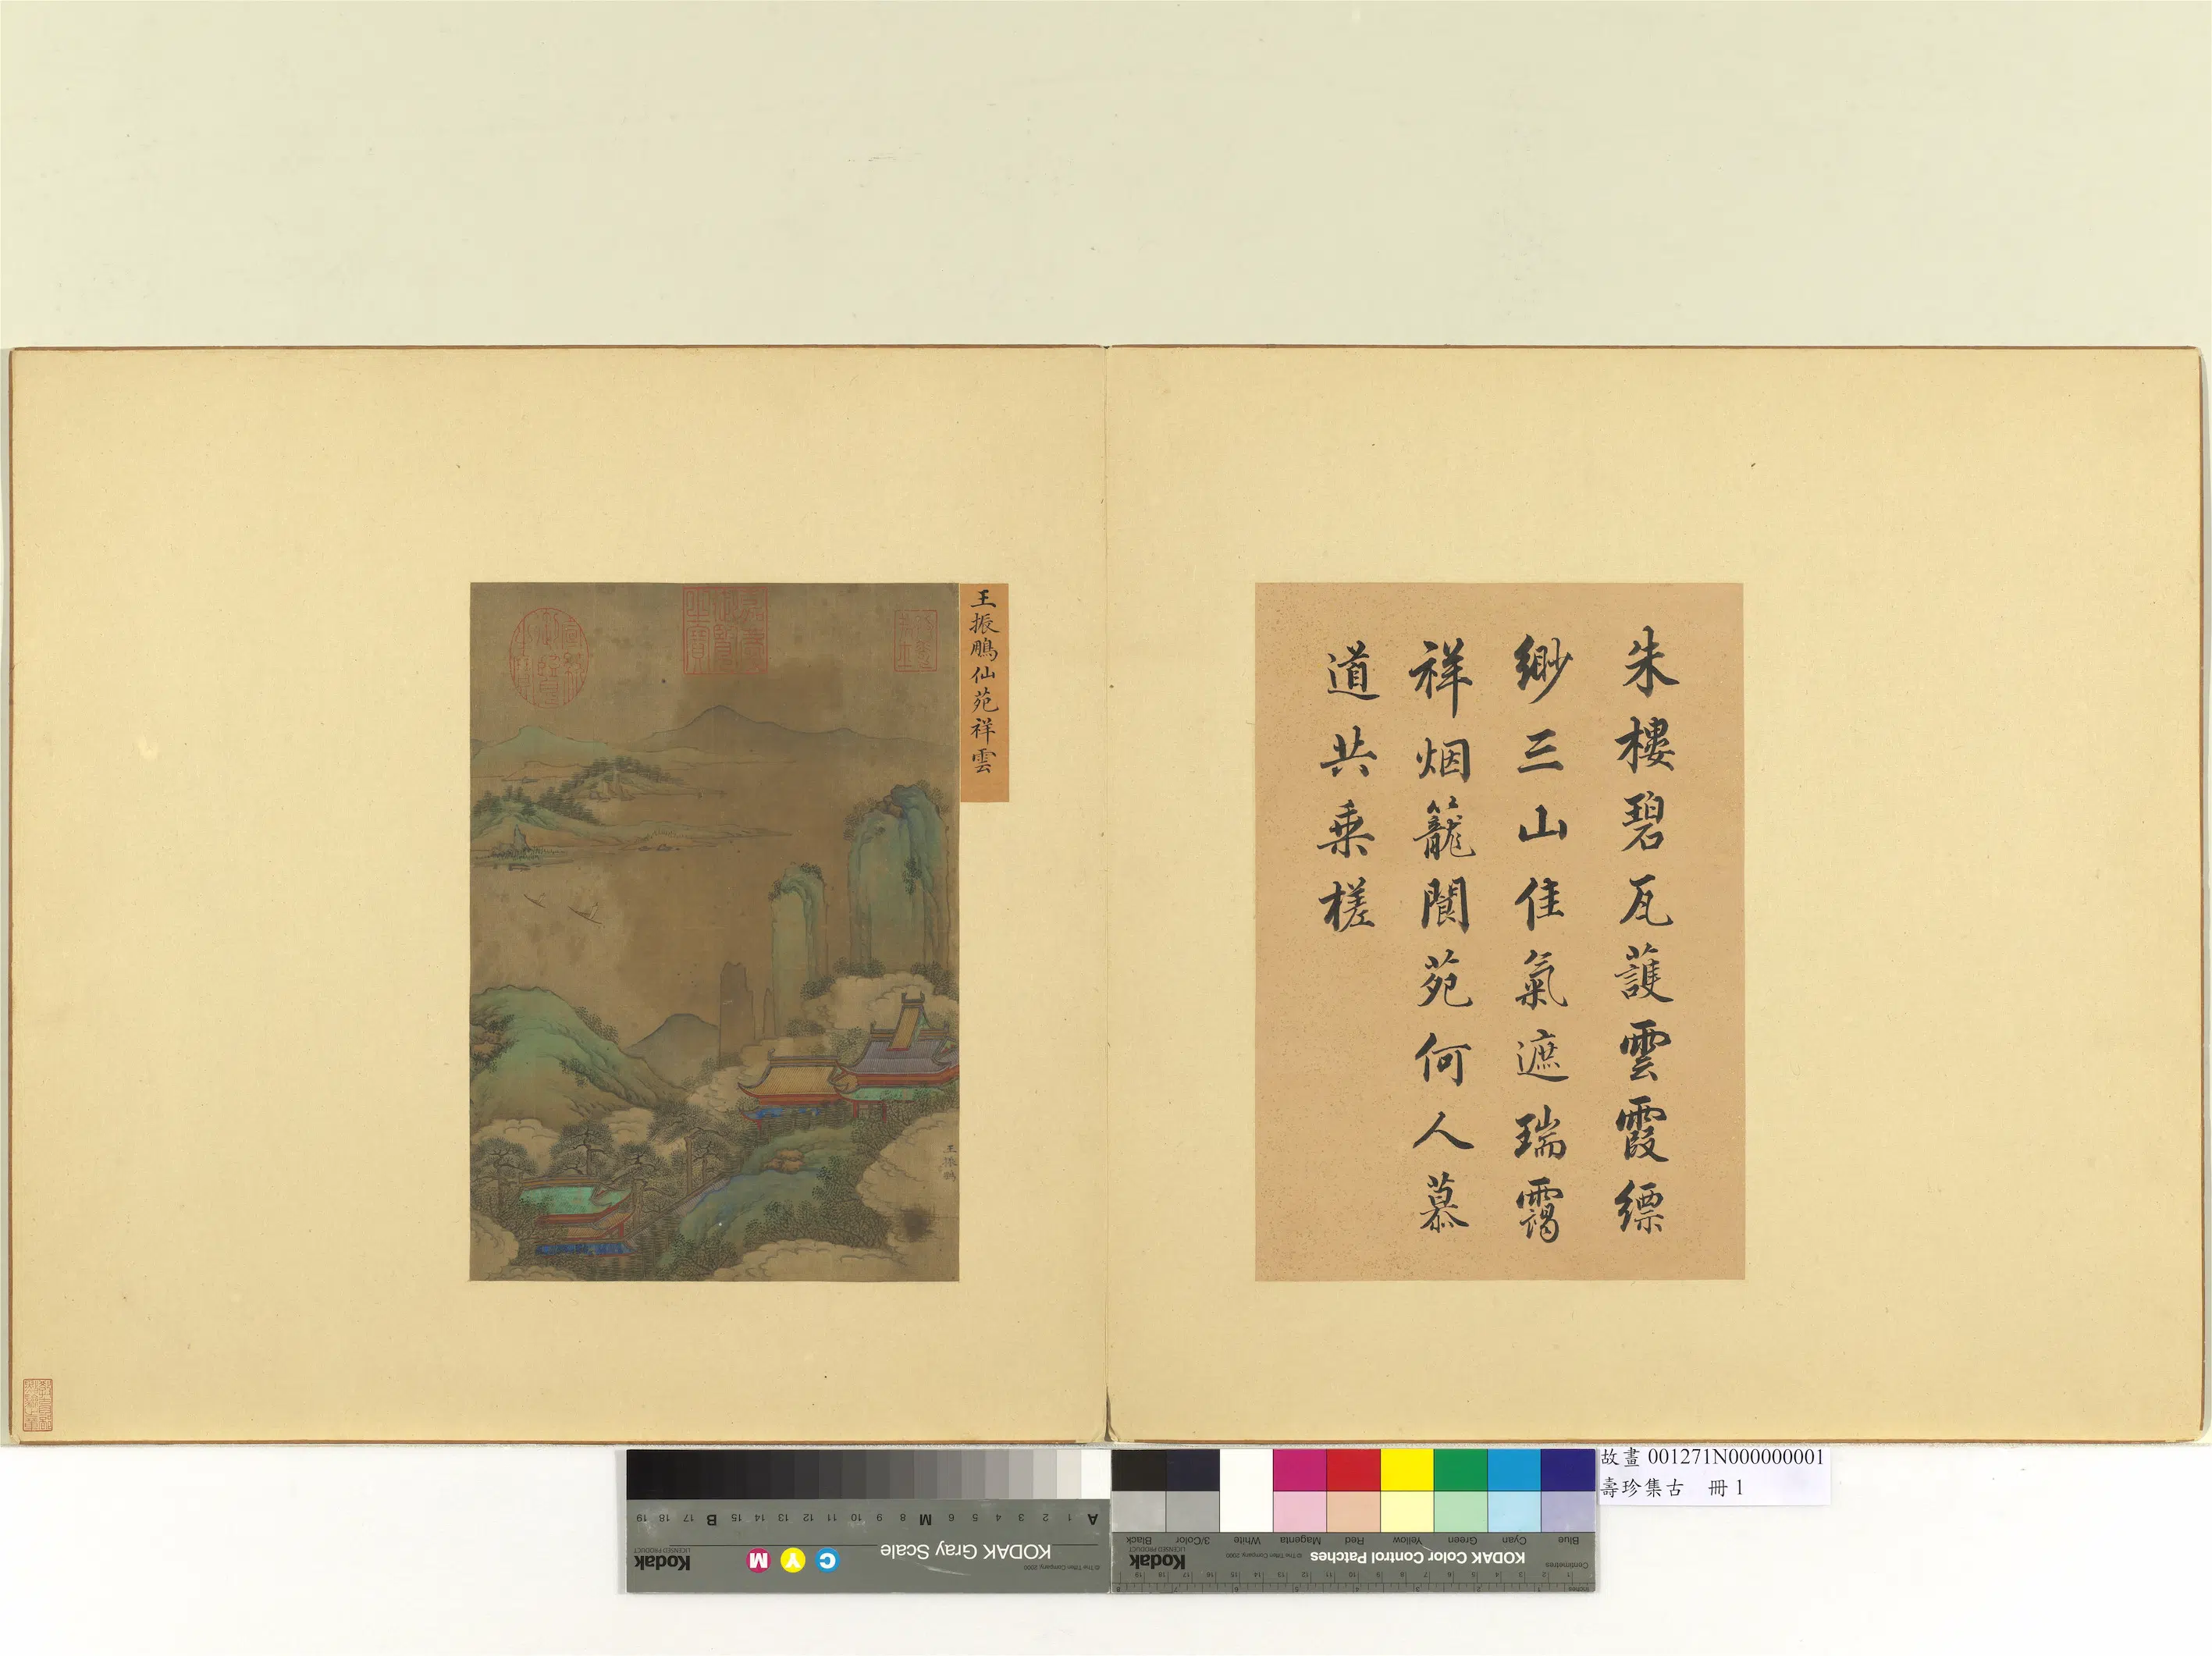 朱樓碧瓦護雲霞縹
緲三山佳氣遮瑞靄
祥烟籠閬苑何人慕
道共乘槎
王振鵬仙苑祥雲
王振鵬
故畫 001271N000000001
壽珍集古 冊1
KODAK Gray Scale
C Y M
Kodak
LICENSED PRODUCT
© The Tiffen Company, 2000
A 1 2 3 4 5 6 M 8 9 10 11 12 13 14 15 B 17 18 19
KODAK Color Control Patches
Kodak
LICENSED PRODUCT
© The Tiffen Company, 2000
Blue Cyan Green Yellow Red Magenta White 3/Color Black
Centimetres
Inches